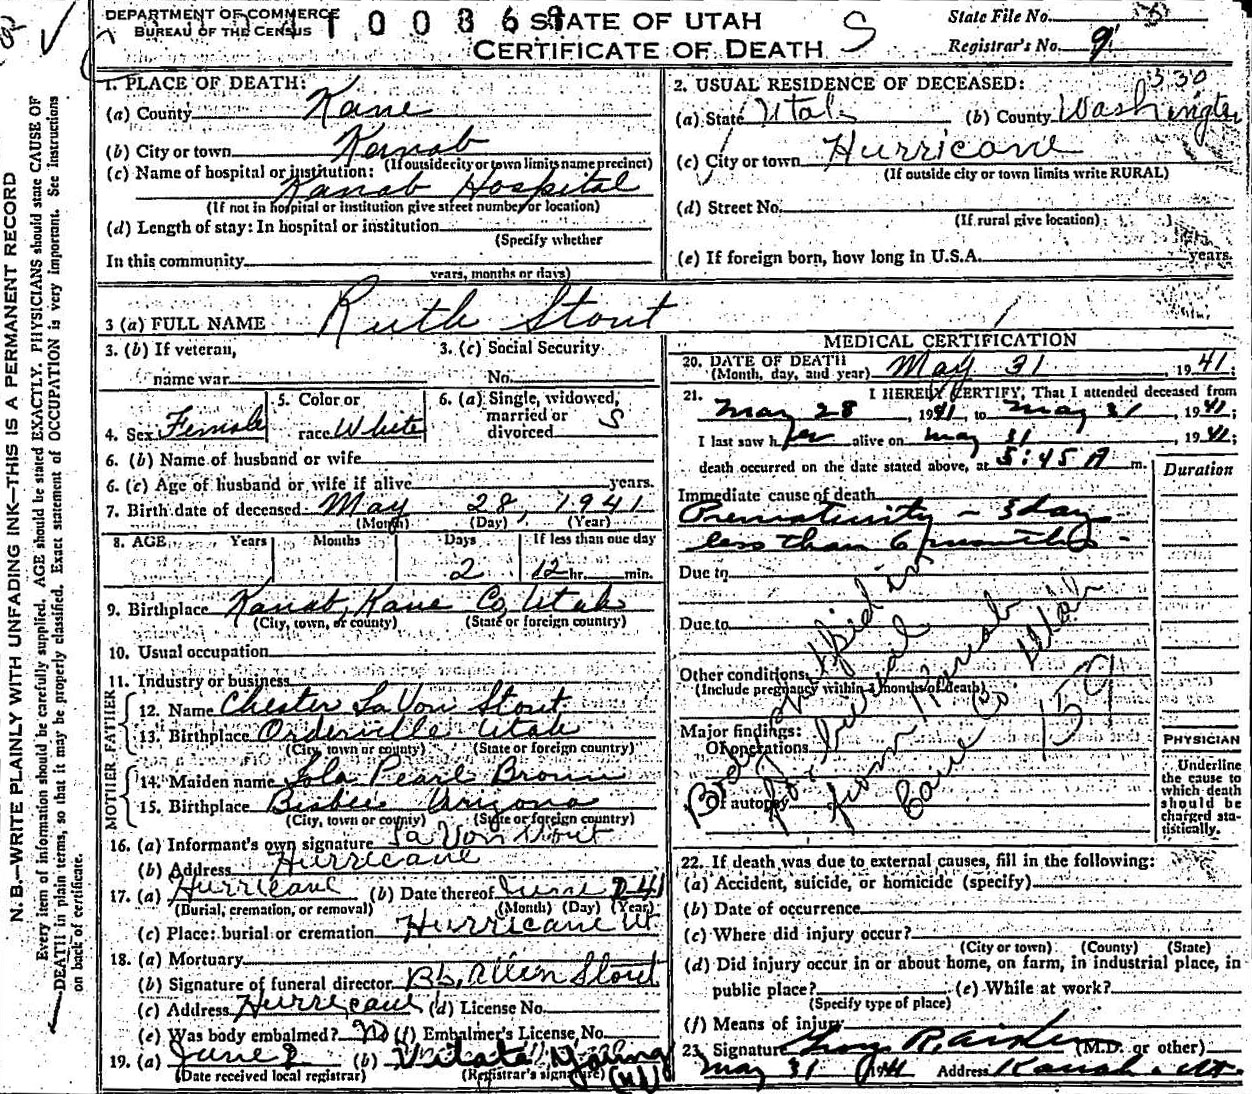 DEPARTMENT OF COMMERCE
BUREAU OF THE CENSUS
STATE OF UTAH
CERTIFICATE OF DEATH
S
State File No.
Registrar's No. 9
N. B.—WRITE PLAINLY WITH UNFADING INK—THIS IS A PERMANENT RECORD
Every item of information should be carefully supplied. AGE should be stated EXACTLY. PHYSICIANS should state CAUSE OF
DEATH in plain terms, so that it may be properly classified. Exact statement of OCCUPATION is very important. See instructions
on back of certificate.
1. PLACE OF DEATH:
(a) County Kane
(b) City or town Kanab
(If outside city or town limits name precinct)
(c) Name of hospital or institution:
Kanab Hospital
(If not in hospital or institution give street number or location)
(d) Length of stay: In hospital or institution
(Specify whether
In this community
years, months or days)
2. USUAL RESIDENCE OF DECEASED: 530
(a) State Utah (b) County Washington
(c) City or town Hurricane
(If outside city or town limits write RURAL)
(d) Street No.
(If rural give location)
(e) If foreign born, how long in U.S.A. years.
3 (a) FULL NAME Ruth Stout
3. (b) If veteran,
name war
3. (c) Social Security
No.
4. Sex Female
5. Color or
race White
6. (a) Single, widowed,
married or
divorced S
6. (b) Name of husband or wife
6. (c) Age of husband or wife if alive years.
7. Birth date of deceased May 28, 1941
(Month) (Day) (Year)
8. AGE Years Months Days If less than one day
2 12 hr. min.
9. Birthplace Kanab, Kane Co, Utah
(City, town, or county) (State or foreign country)
10. Usual occupation
11. Industry or business
FATHER
12. Name Chester La Von Stout
13. Birthplace Orderville Utah
(City, town or county) (State or foreign country)
MOTHER
14. Maiden name Iola Pearl Brown
15. Birthplace Bisbee Arizona
(City, town or county) (State or foreign country)
16. (a) Informant's own signature La Von Stout
(b) Address Hurricane
17. (a) Hurricane (b) Date thereof June 2-41
(Burial, cremation, or removal) (Month) (Day) (Year)
(c) Place: burial or cremation Hurricane Ut
18. (a) Mortuary
(b) Signature of funeral director Allen Stout
(c) Address Hurricane (d) License No.
(e) Was body embalmed? No (f) Embalmer's License No.
19. (a) June 2 (b) Young
(Date received local registrar) (Registrar's signature)
MEDICAL CERTIFICATION
20. DATE OF DEATH May 31, 1941;
(Month, day, and year)
21. I HEREBY CERTIFY, That I attended deceased from
May 28, 1941, to May 31, 1941;
I last saw her alive on May 31, 1941;
death occurred on the date stated above, at 5:45 A m.
Duration
Immediate cause of death
Prematurity - 3 day
less than 6 months -
Due to
Due to
Other conditions
(Include pregnancy within 3 months of death)
Major findings:
Of operations
Of autopsy
Body shipped in
for burial
from Kanab
Kane Co Utah
159
PHYSICIAN
Underline
the cause to
which death
should be
charged sta-
tistically.
22. If death was due to external causes, fill in the following:
(a) Accident, suicide, or homicide (specify)
(b) Date of occurrence
(c) Where did injury occur?
(City or town) (County) (State)
(d) Did injury occur in or about home, on farm, in industrial place, in
public place? (e) While at work?
(Specify type of place)
(f) Means of injury
23. Signature Geo. R. Aiken (M.D. or other)
May 31 1941 Address Kanab, Ut.